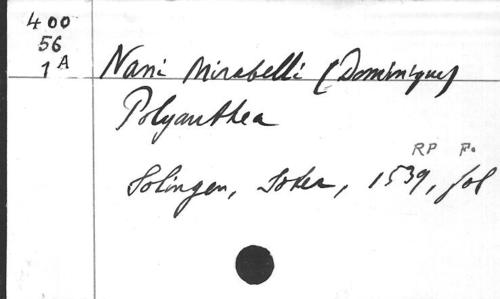 400
56
1A
Nani Mirabelli (Dominique)
Polyanthea
RP F.
Solingen, Soter, 1539, fol